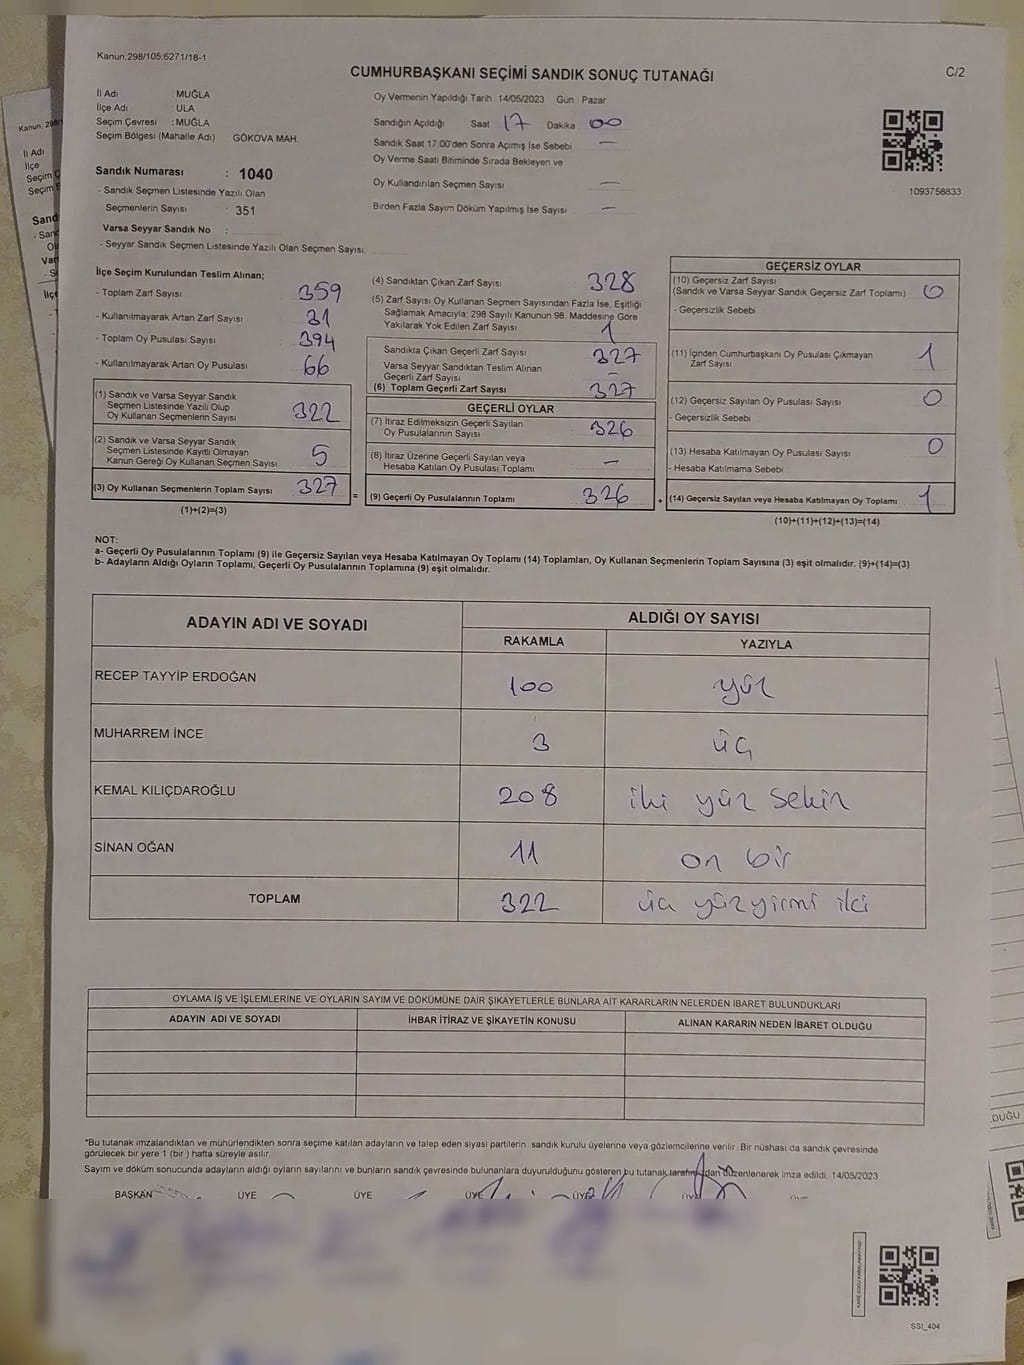 Kanun;298/105;6271/18-1
CUMHURBAŞKANI SEÇİMİ SANDIK SONUÇ TUTANAĞI
C/2
İl Adı : MUĞLA
İlçe Adı : ULA
Seçim Çevresi : MUĞLA
Seçim Bölgesi (Mahalle Adı) GÖKOVA MAH.
Oy Vermenin Yapıldığı Tarih : 14/05/2023 Gün : Pazar
Sandığın Açıldığı Saat 17 Dakika 00
Sandık Saat 17:00'den Sonra Açımış İse Sebebi —
Oy Verme Saati Bitiminde Sırada Bekleyen ve
Oy Kullandırılan Seçmen Sayısı —
Birden Fazla Sayım Döküm Yapılmış İse Sayısı —
1093758833
Sandık Numarası : 1040
- Sandık Seçmen Listesinde Yazılı Olan
Seçmenlerin Sayısı : 351
Varsa Seyyar Sandık No :
- Seyyar Sandık Seçmen Listesinde Yazılı Olan Seçmen Sayısı.
İlçe Seçim Kurulundan Teslim Alınan;
- Toplam Zarf Sayısı 359
- Kullanılmayarak Artan Zarf Sayısı 31
- Toplam Oy Pusulası Sayısı 394
- Kullanılmayarak Artan Oy Pusulası 66
(1) Sandık ve Varsa Seyyar Sandık
Seçmen Listesinde Yazılı Olup
Oy Kullanan Seçmenlerin Sayısı 322
(2) Sandık ve Varsa Seyyar Sandık
Seçmen Listesinde Kayıtlı Olmayan
Kanun Gereği Oy Kullanan Seçmen Sayısı 5
(3) Oy Kullanan Seçmenlerin Toplam Sayısı 327
(1)+(2)=(3)
=
(4) Sandıktan Çıkan Zarf Sayısı 328
(5) Zarf Sayısı Oy Kullanan Seçmen Sayısından Fazla İse, Eşitliği
Sağlamak Amacıyla, 298 Sayılı Kanunun 98. Maddesine Göre
Yakılarak Yok Edilen Zarf Sayısı 1
Sandıkta Çıkan Geçerli Zarf Sayısı 327
Varsa Seyyar Sandıktan Teslim Alınan
Geçerli Zarf Sayısı —
(6) Toplam Geçerli Zarf Sayısı 327
GEÇERLİ OYLAR
(7) İtiraz Edilmeksizin Geçerli Sayılan
Oy Pusulalarının Sayısı 326
(8) İtiraz Üzerine Geçerli Sayılan veya
Hesaba Katılan Oy Pusulası Toplamı —
(9) Geçerli Oy Pusulalarının Toplamı 326
+
GEÇERSİZ OYLAR
(10) Geçersiz Zarf Sayısı
(Sandık ve Varsa Seyyar Sandık Geçersiz Zarf Toplamı) 0
- Geçersizlik Sebebi
(11) İçinden Cumhurbaşkanı Oy Pusulası Çıkmayan
Zarf Sayısı 1
(12) Geçersiz Sayılan Oy Pusulası Sayısı 0
- Geçersizlik Sebebi
(13) Hesaba Katılmayan Oy Pusulası Sayısı 0
- Hesaba Katılmama Sebebi
(14) Geçersiz Sayılan veya Hesaba Katılmayan Oy Toplamı 1
(10)+(11)+(12)+(13)=(14)
NOT:
a- Geçerli Oy Pusulalarının Toplamı (9) ile Geçersiz Sayılan veya Hesaba Katılmayan Oy Toplamı (14) Toplamları, Oy Kullanan Seçmenlerin Toplam Sayısına (3) eşit olmalıdır. (9)+(14)=(3)
b- Adayların Aldığı Oyların Toplamı, Geçerli Oy Pusulalarının Toplamına (9) eşit olmalıdır.
ADAYIN ADI VE SOYADI
ALDIĞI OY SAYISI
RAKAMLA YAZIYLA
RECEP TAYYİP ERDOĞAN 100 yüz
MUHARREM İNCE 3 üç
KEMAL KILIÇDAROĞLU 208 iki yüz sekiz
SİNAN OĞAN 11 on bir
TOPLAM 322 üç yüzyirmi iki
OYLAMA İŞ VE İŞLEMLERİNE VE OYLARIN SAYIM VE DÖKÜMÜNE DAİR ŞİKAYETLERLE BUNLARA AİT KARARLARIN NELERDEN İBARET BULUNDUKLARI
ADAYIN ADI VE SOYADI İHBAR İTİRAZ VE ŞİKAYETİN KONUSU ALINAN KARARIN NEDEN İBARET OLDUĞU
*Bu tutanak imzalandıktan ve mühürlendikten sonra seçime katılan adayların ve talep eden siyasi partilerin sandık kurulu üyelerine veya gözlemcilerine verilir. Bir nüshası da sandık çevresinde
görülecek bir yere 1 (bir ) hafta süreyle asılır.
Sayım ve döküm sonucunda adayların aldığı oyların sayılarını ve bunların sandık çevresinde bulunanlara duyurulduğunu gösteren bu tutanak tarafımızdan düzenlenerek imza edildi. 14/05/2023
BAŞKAN ÜYE ÜYE ÜYE ÜYE
SSI_404